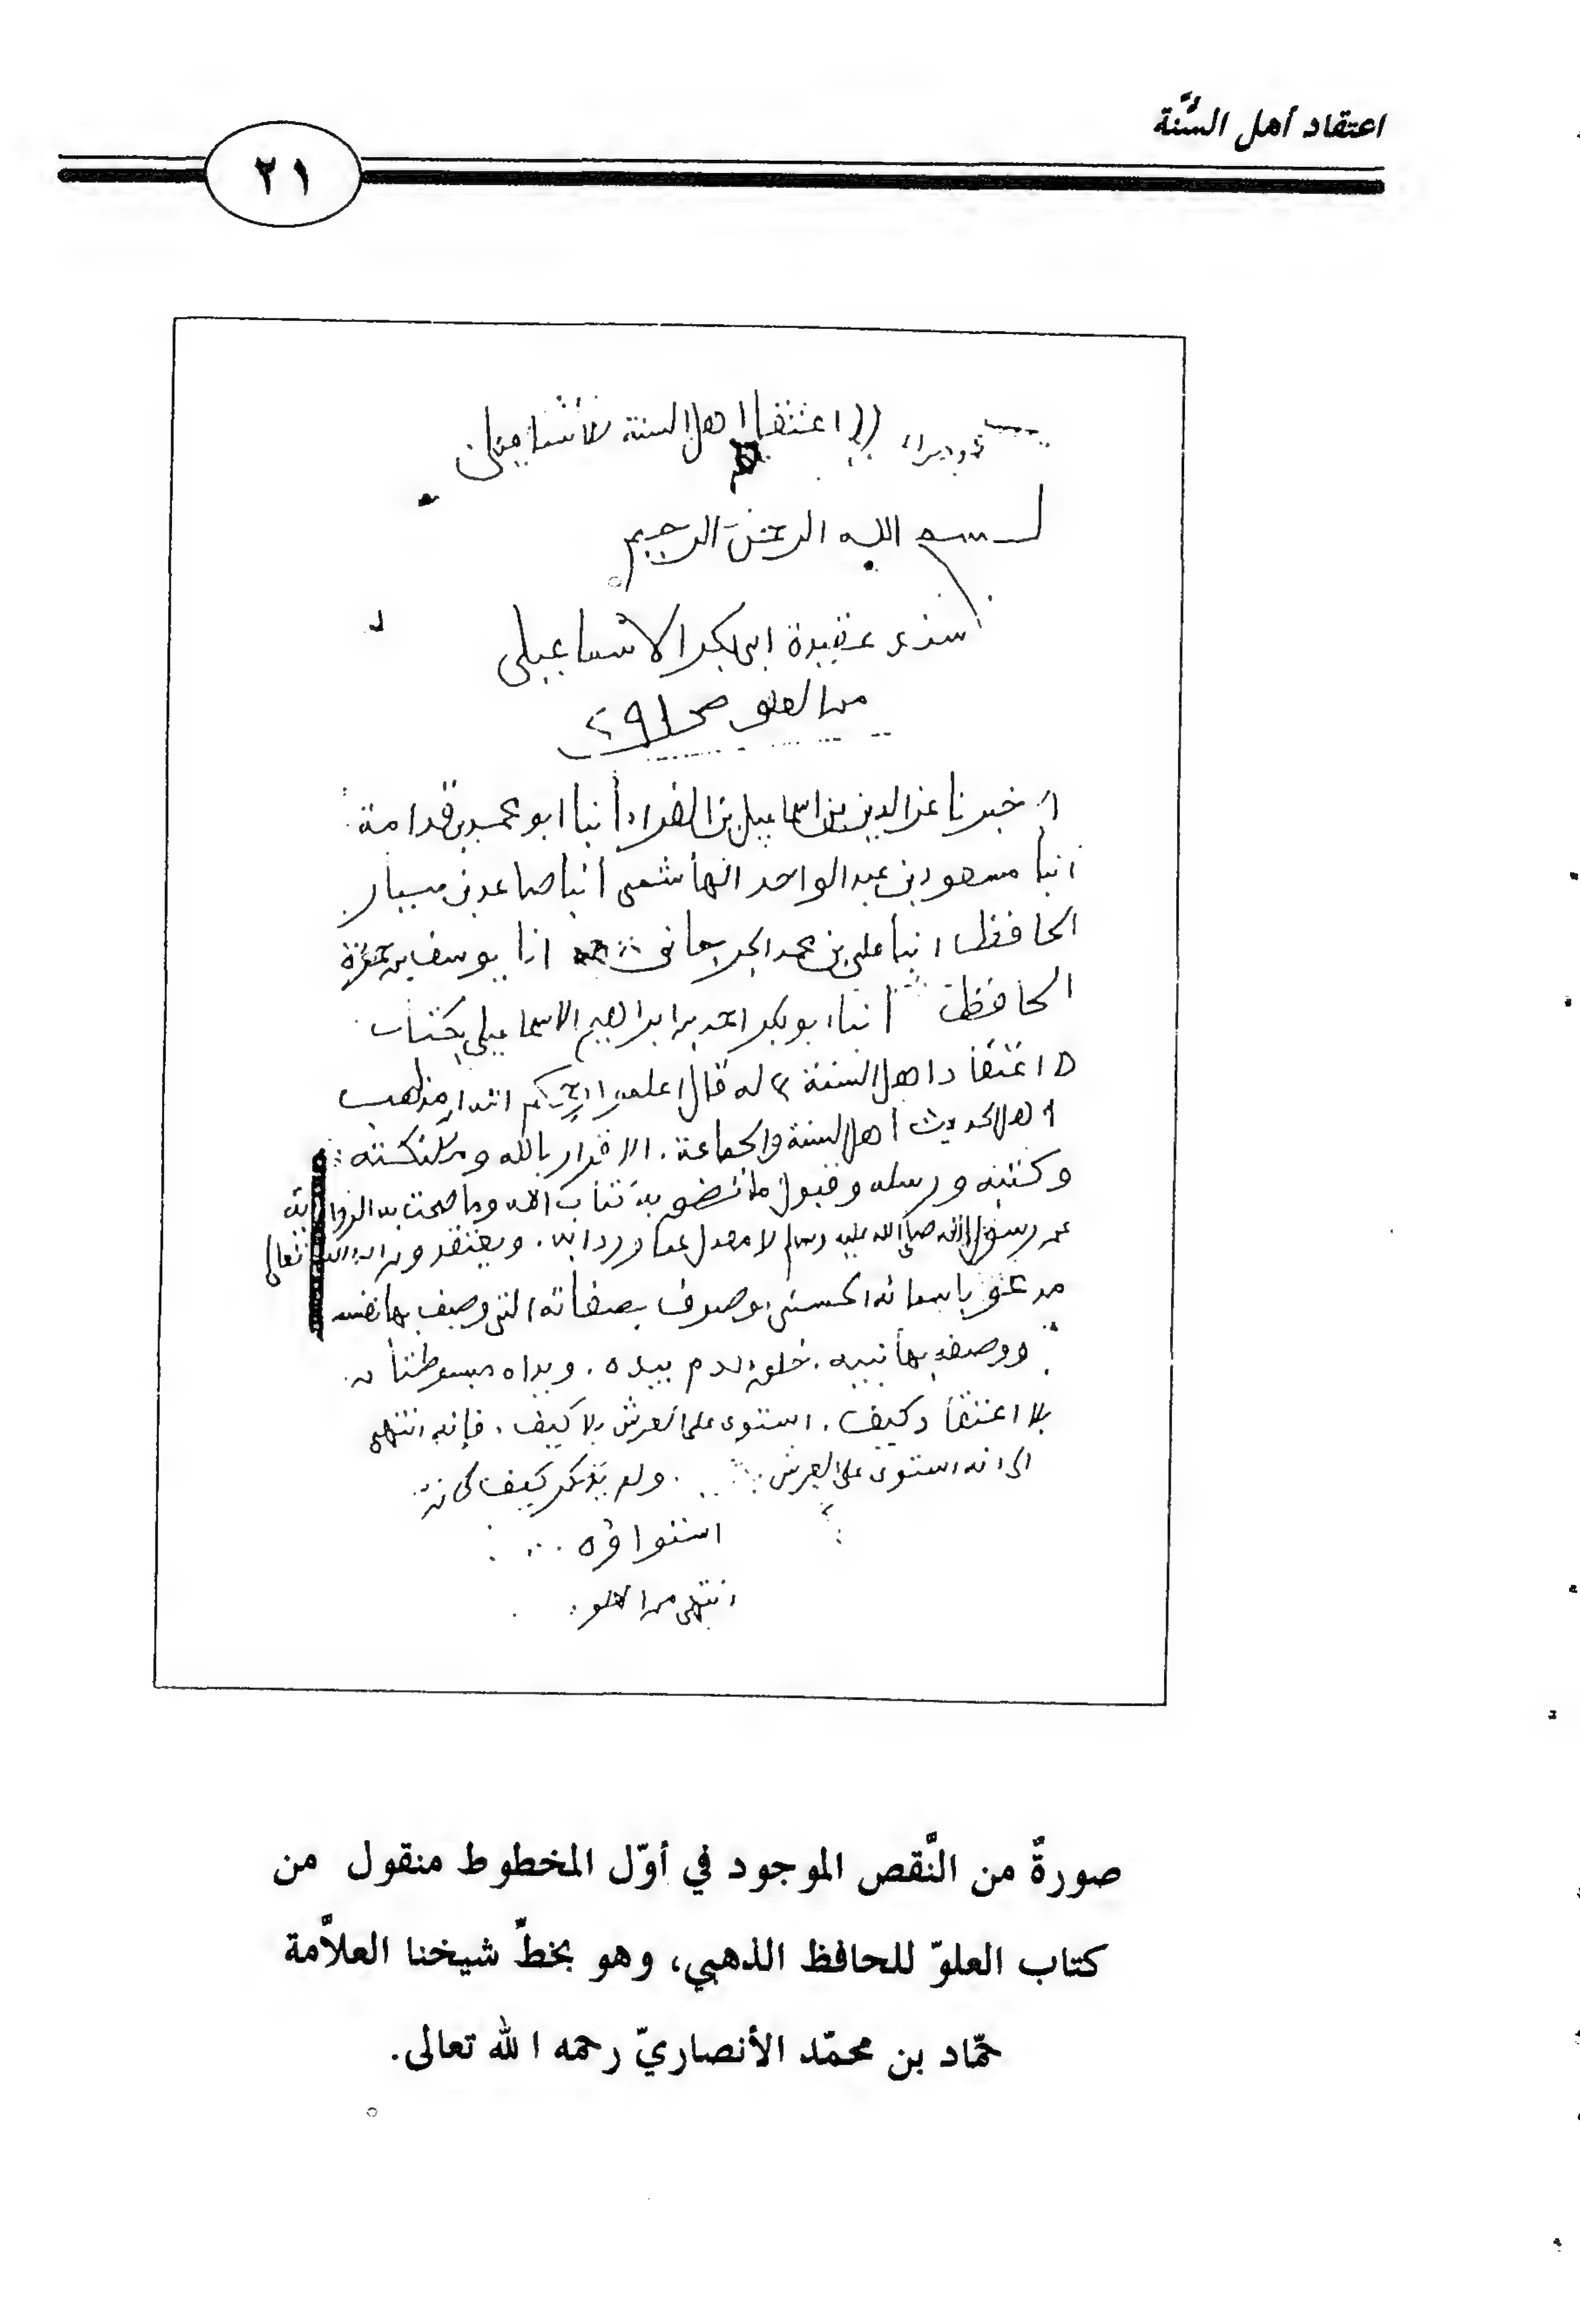 اعتقاد أهل السُّنة
٢١
(( اعتقاد اهل السنة للأسماعيلى
بسم الله الرحمن الرحيم
سند عقيدة ابى بكر الاسماعيلى
من العلو ص
اخبرنا عز الدين بن اسماعيل بن الفراء أنبا ابو محمد بن قدامة
انبا مسعود بن عبد الواحد الهاشمى انبا صاعد بن سيار
الحافظ انبا على بن محمد الجرجانى انا يوسف بن حمزة
الحافظ انبا ابو بكر احمد بن ابراهيم الاسماعيلى بكتاب
اعتقاد اهل السنة له قال اعلموا رحمكم الله ان مذهب
اهل الحديث أهل السنة والجماعة . الاقرار بالله وملائكته
وكتبه ورسله وقبول ما نطق به كتاب الله وما صحت به الرواية
عن رسول الله صلى الله عليه وسلم لا معدل عما ورد به . ويعتقدون ان الله تعالى
مدعو باسمائه الحسنى موصوف بصفاته التى وصف بها نفسه
ووصفه بها نبيه . خلق آدم بيده . ويداه مبسوطتان
بلا اعتقاد كيف . استوى على العرش بلا كيف . فإنه انتهى
الى انه استوى على العرش . ولم يذكر كيف كان
استواؤه
انتهى من العلو
صورةٌ من النَّقص الموجود في أوّل المخطوط منقول من
كتاب العلوّ للحافظ الذهبي، وهو بخطّ شيخنا العلاَّمة
حمّاد بن محمّد الأنصاريّ رحمه الله تعالى.